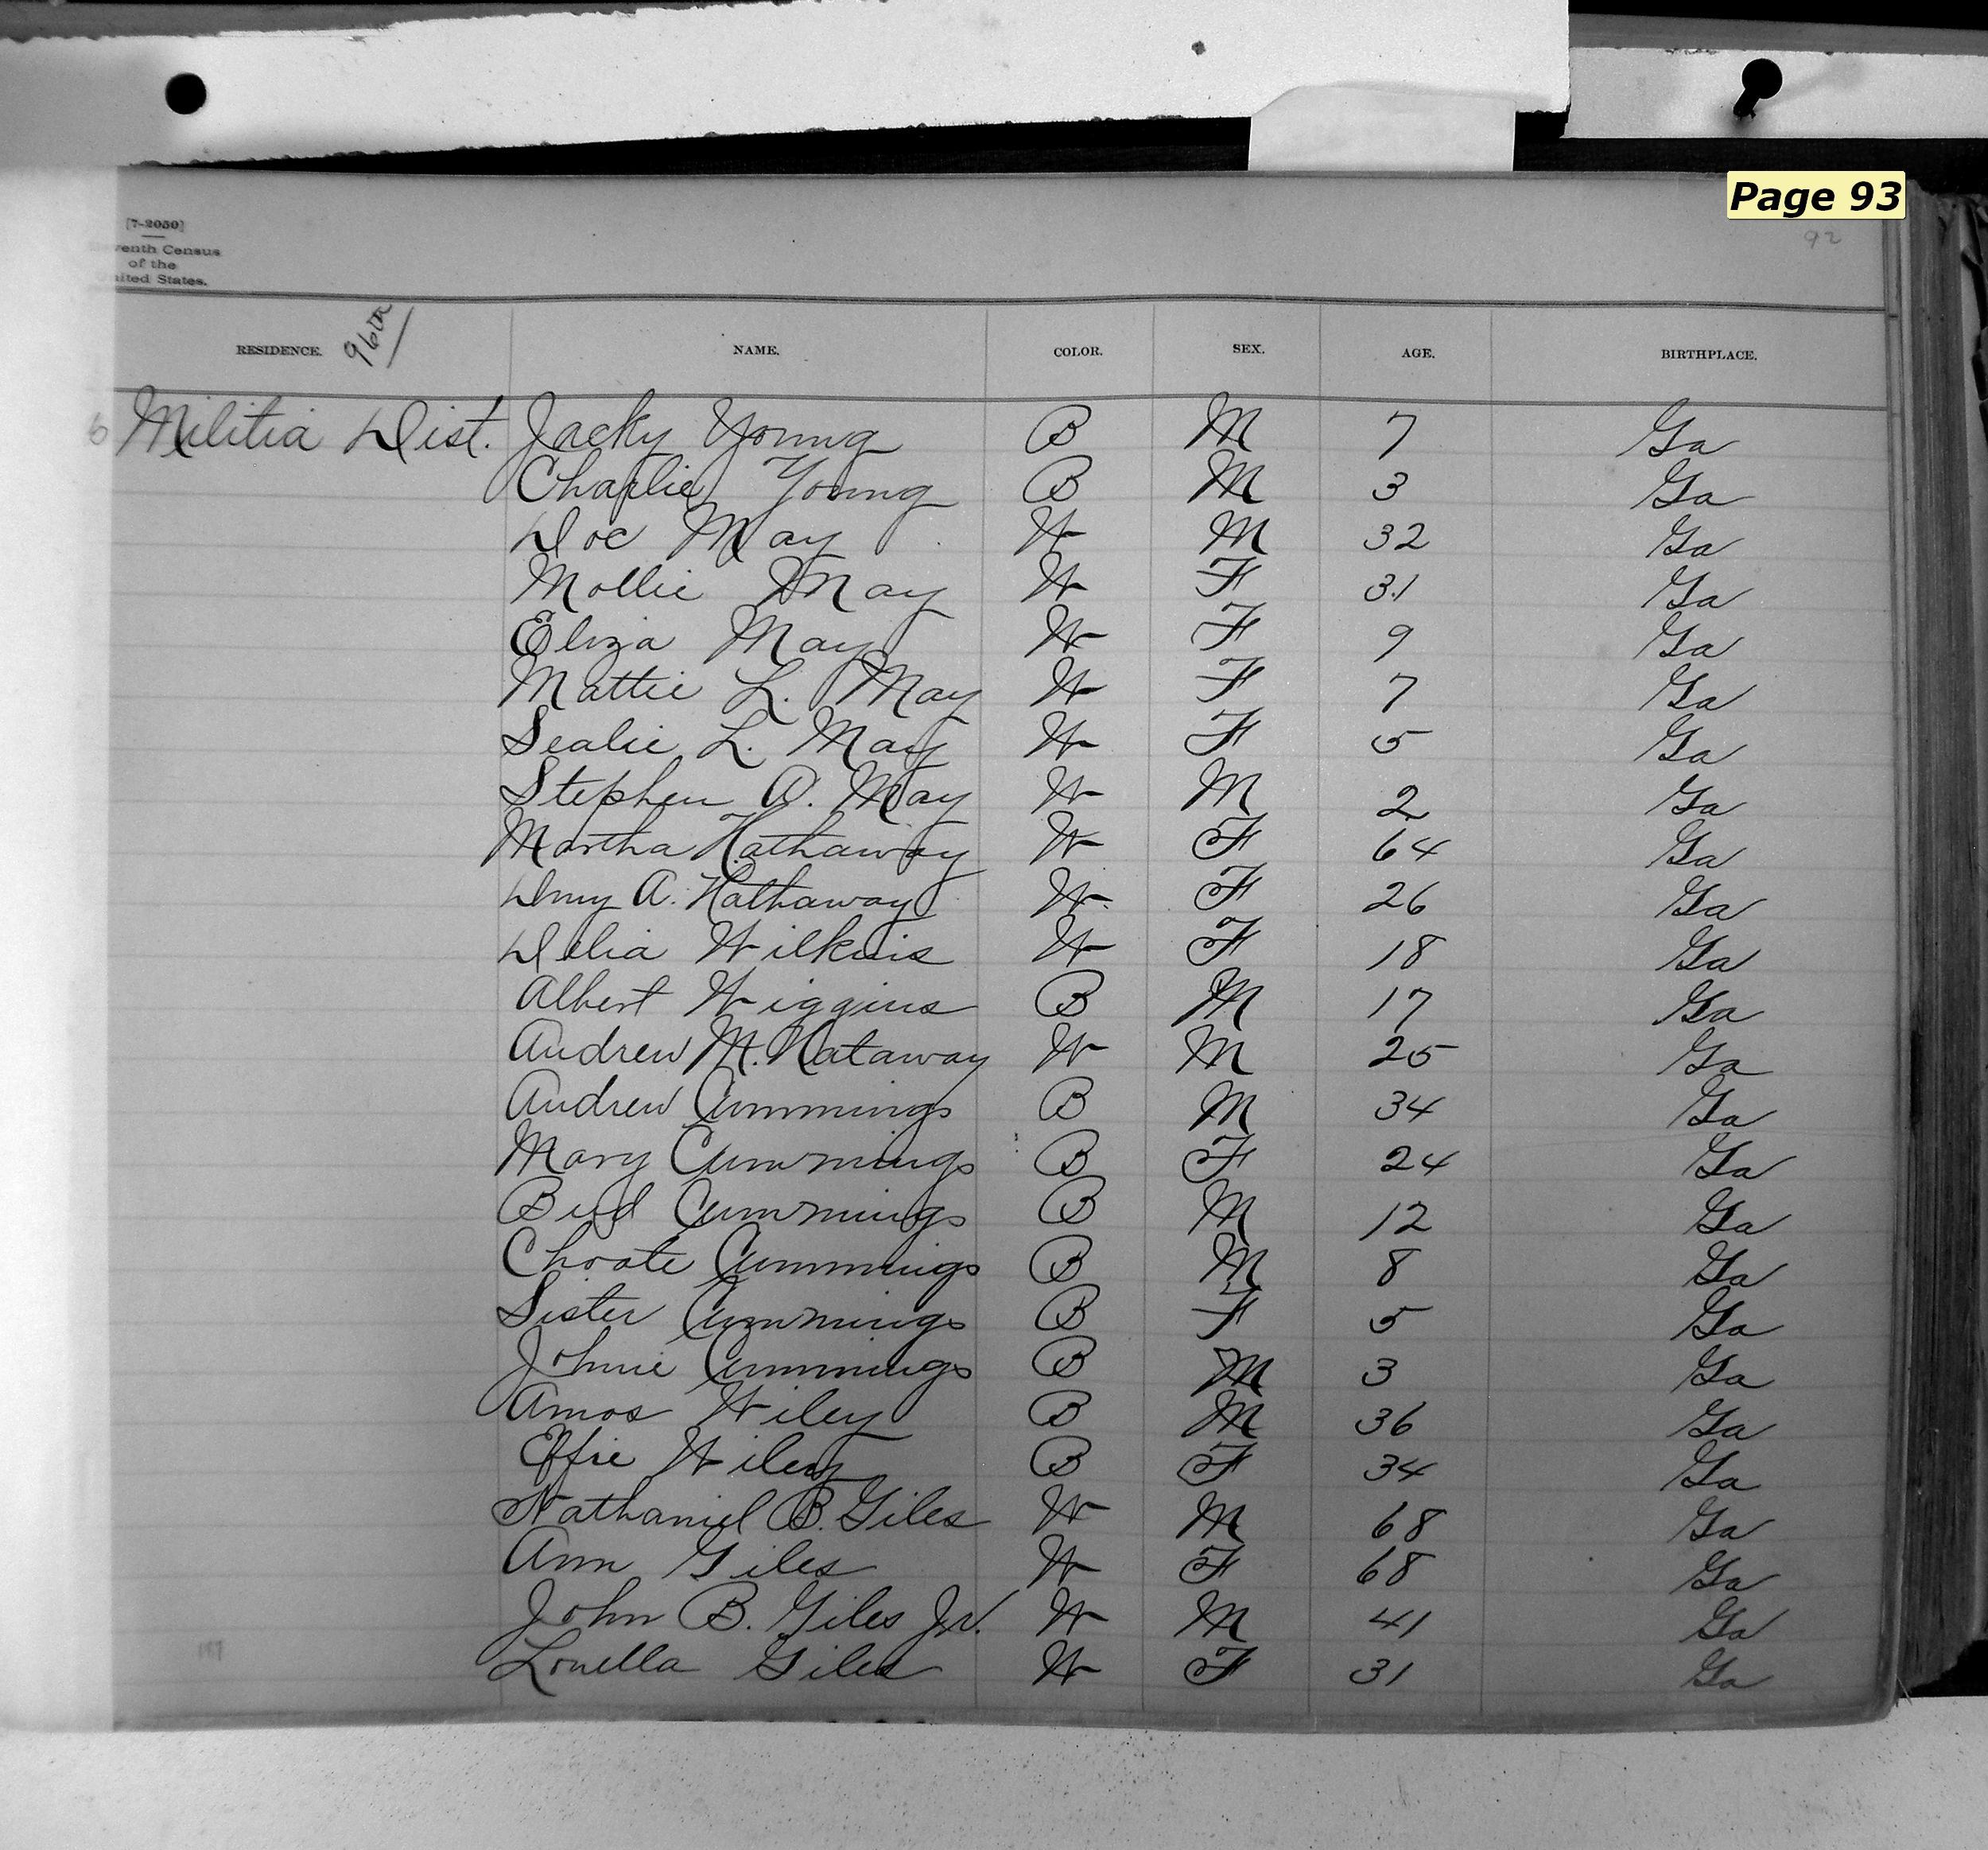 Page 93
92
[7-2050]
venth Census
of the
nited States.
RESIDENCE. 96th NAME. COLOR. SEX. AGE. BIRTHPLACE.
6 Militia Dist. Jacky Young B M 7 Ga
Charlie Young B M 3 Ga
Doc May W M 32 Ga
Mollie May W F 31 Ga
Eliza May W F 9 Ga
Mattie L. May W F 7 Ga
Sealie L. May W F 5 Ga
Stephen A. May W M 2 Ga
Martha Hathaway W F 64 Ga
A. Hathaway W F 26 Ga
Delia Wilkins W F 18 Ga
Albert Wiggins B M 17 Ga
Andrew M. Hataway W M 25 Ga
Andrew Cummings B M 34 Ga
Mary Cummings B F 24 Ga
Bud Cummings B M 12 Ga
Choate Cummings B M 8 Ga
Sister Cummings B F 5 Ga
Johnie Cummings B M 3 Ga
Amos Wiley B M 36 Ga
Effie Wiley B F 34 Ga
Nathaniel B. Giles W M 68 Ga
Ann Giles W F 68 Ga
John B. Giles Jr. W M 41 Ga
Louella Giles W F 31 Ga